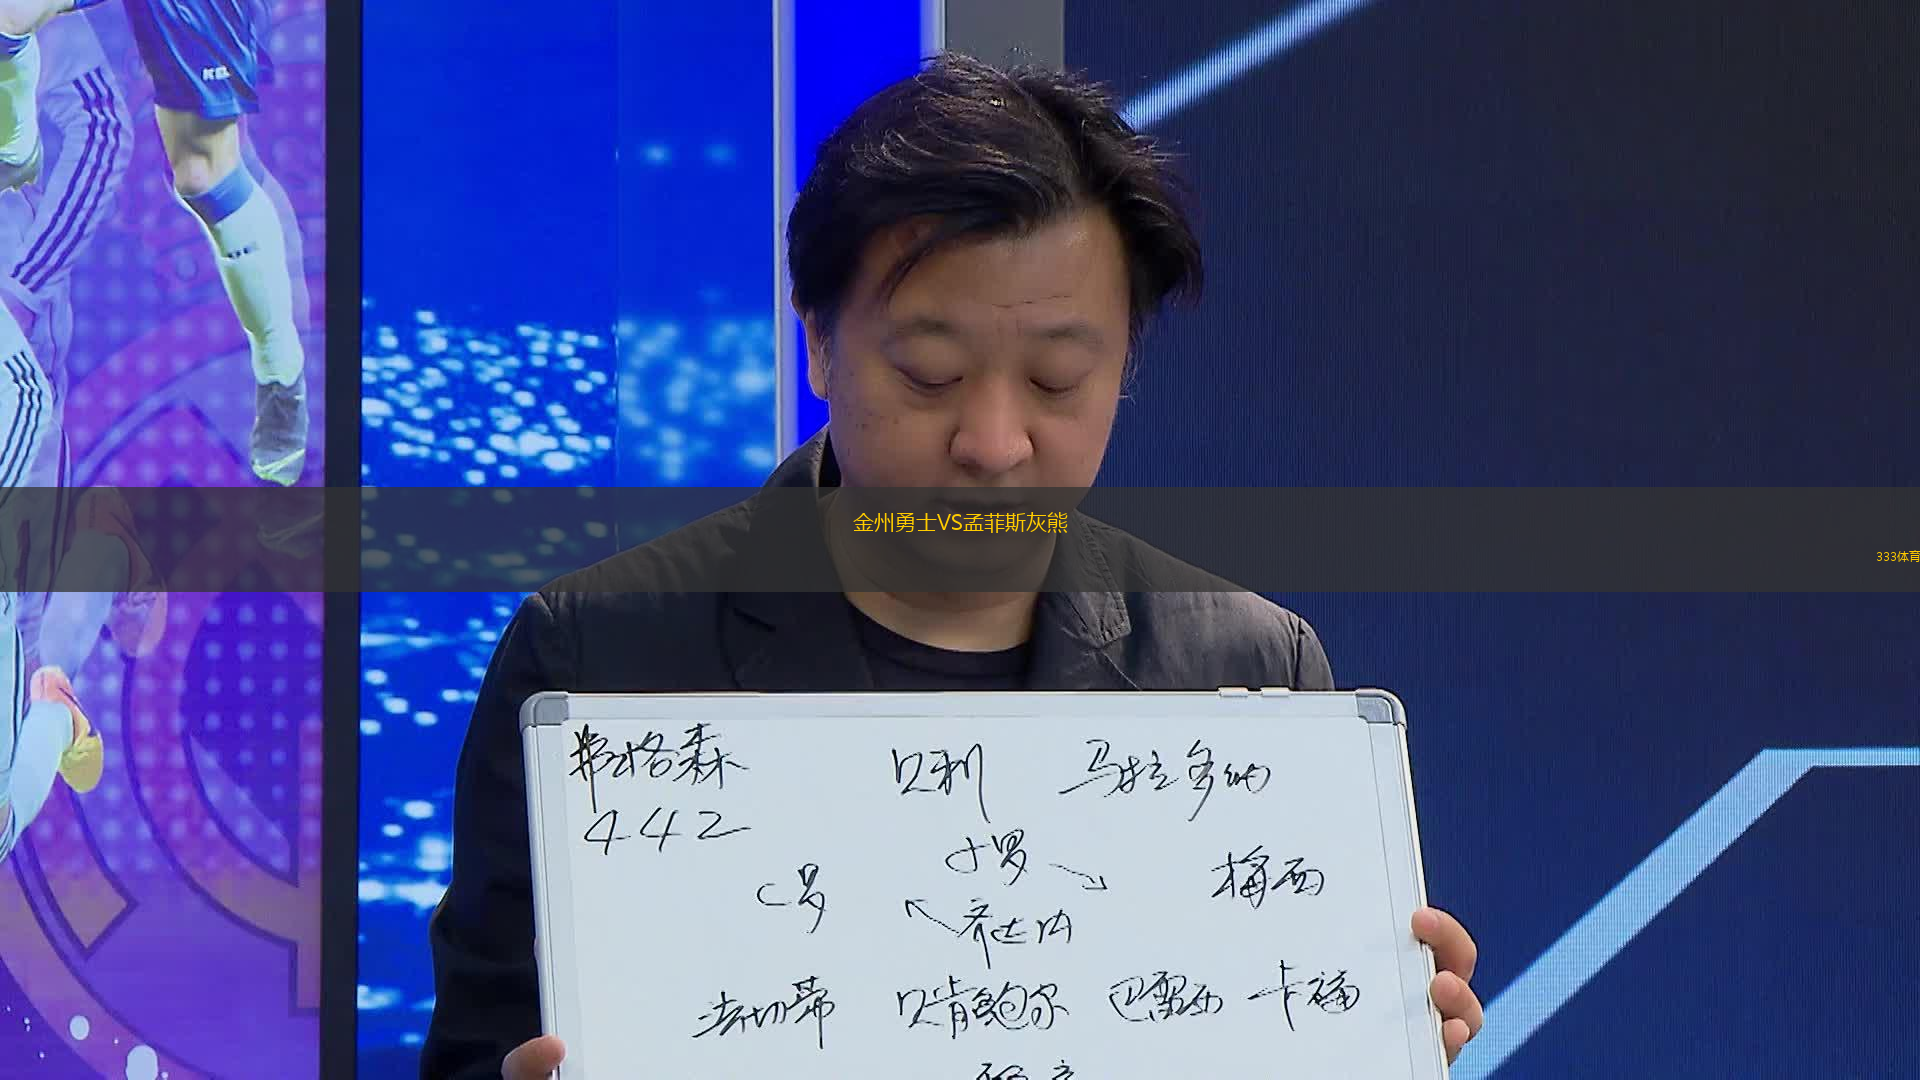 金州勇士VS孟菲斯灰熊
333体育
弗格森 贝利 马拉多纳
442
小罗
C罗 梅西
齐达内
法切蒂 贝肯鲍尔 巴雷西 卡福